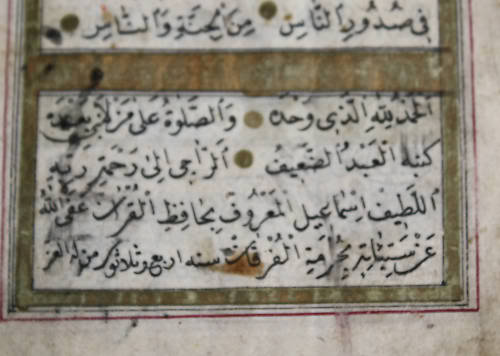 فِى صُدُورِ النَّاسِ مِنَ الْجِنَّةِ وَالنَّاسِ
اَلْحَمْدُ لِلّٰهِ الَّذِى وَحْدَهُ وَالصَّلٰوةُ عَلٰى مَنْ لَا نَبِىَّ بَعْدَهُ
كتبه الْعَبْدُ الضَّعِيفُ اَلرَّاجِى اِلٰى رَحْمَةِ رَبِّهِ
اللَّطِيفْ اِسْمَاعِيل الْمَعْرُوفْ بِحَافِظِ الْقُرْاٰنْ عَفَى اللّٰهُ
عَنْ سَيِّئَاتِهِ بِحُرْمَةِ الْفُرْقَانْ سنه اربع وثلاثون من